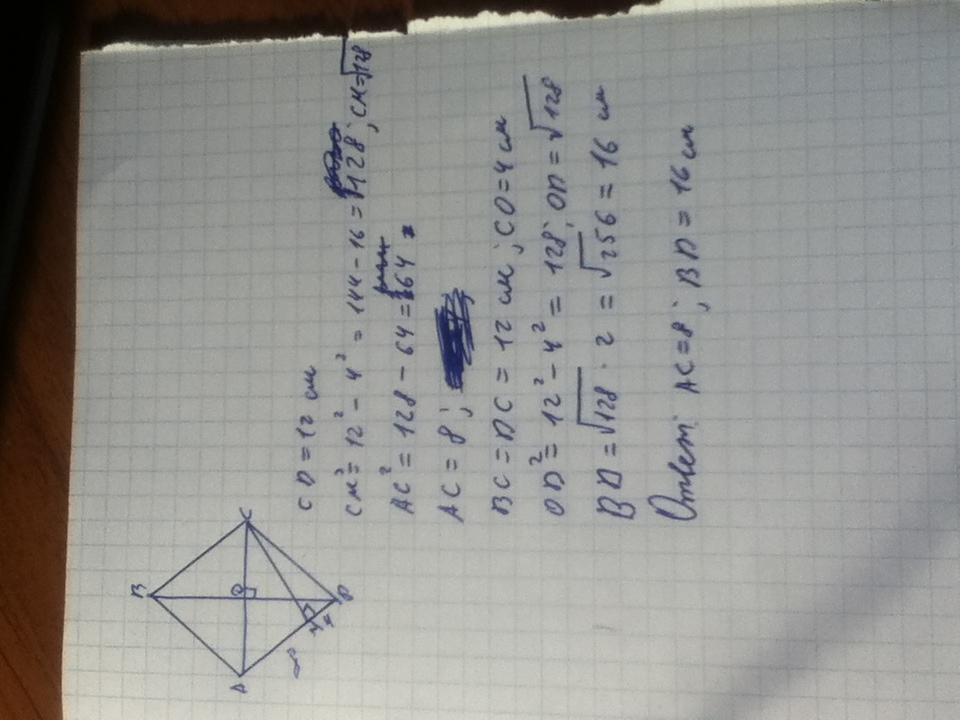 B
A
O
C
M
D
8
4
CD = 12 см
CM² = 12² - 4² = 144 - 16 = √128 ; CM = √128
AC² = 128 - 64 = 64
AC = 8 ;
BC = DC = 12 см ; CO = 4 см
OD² = 12² - 4² = 128 ; OD = √128
BD = √128 · 2 = √256 = 16 см
Ответ: AC = 8 ; BD = 16 см